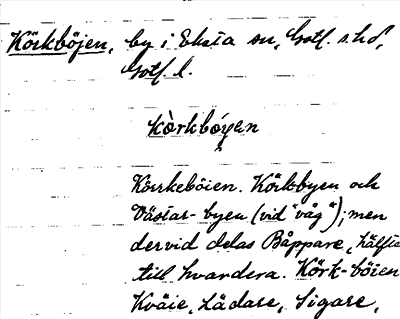 Körkböjen, by i Eksta sn, Gotl. s. hd,
Gotl. l.
kòrkbóyen
Körrkeböien. Körkbyen och
Västar-byen (vid "våg"); men
dervid delas Båppare, hälften
till hvardera. Körk-böien
Kväie, Lädare, Sigare,